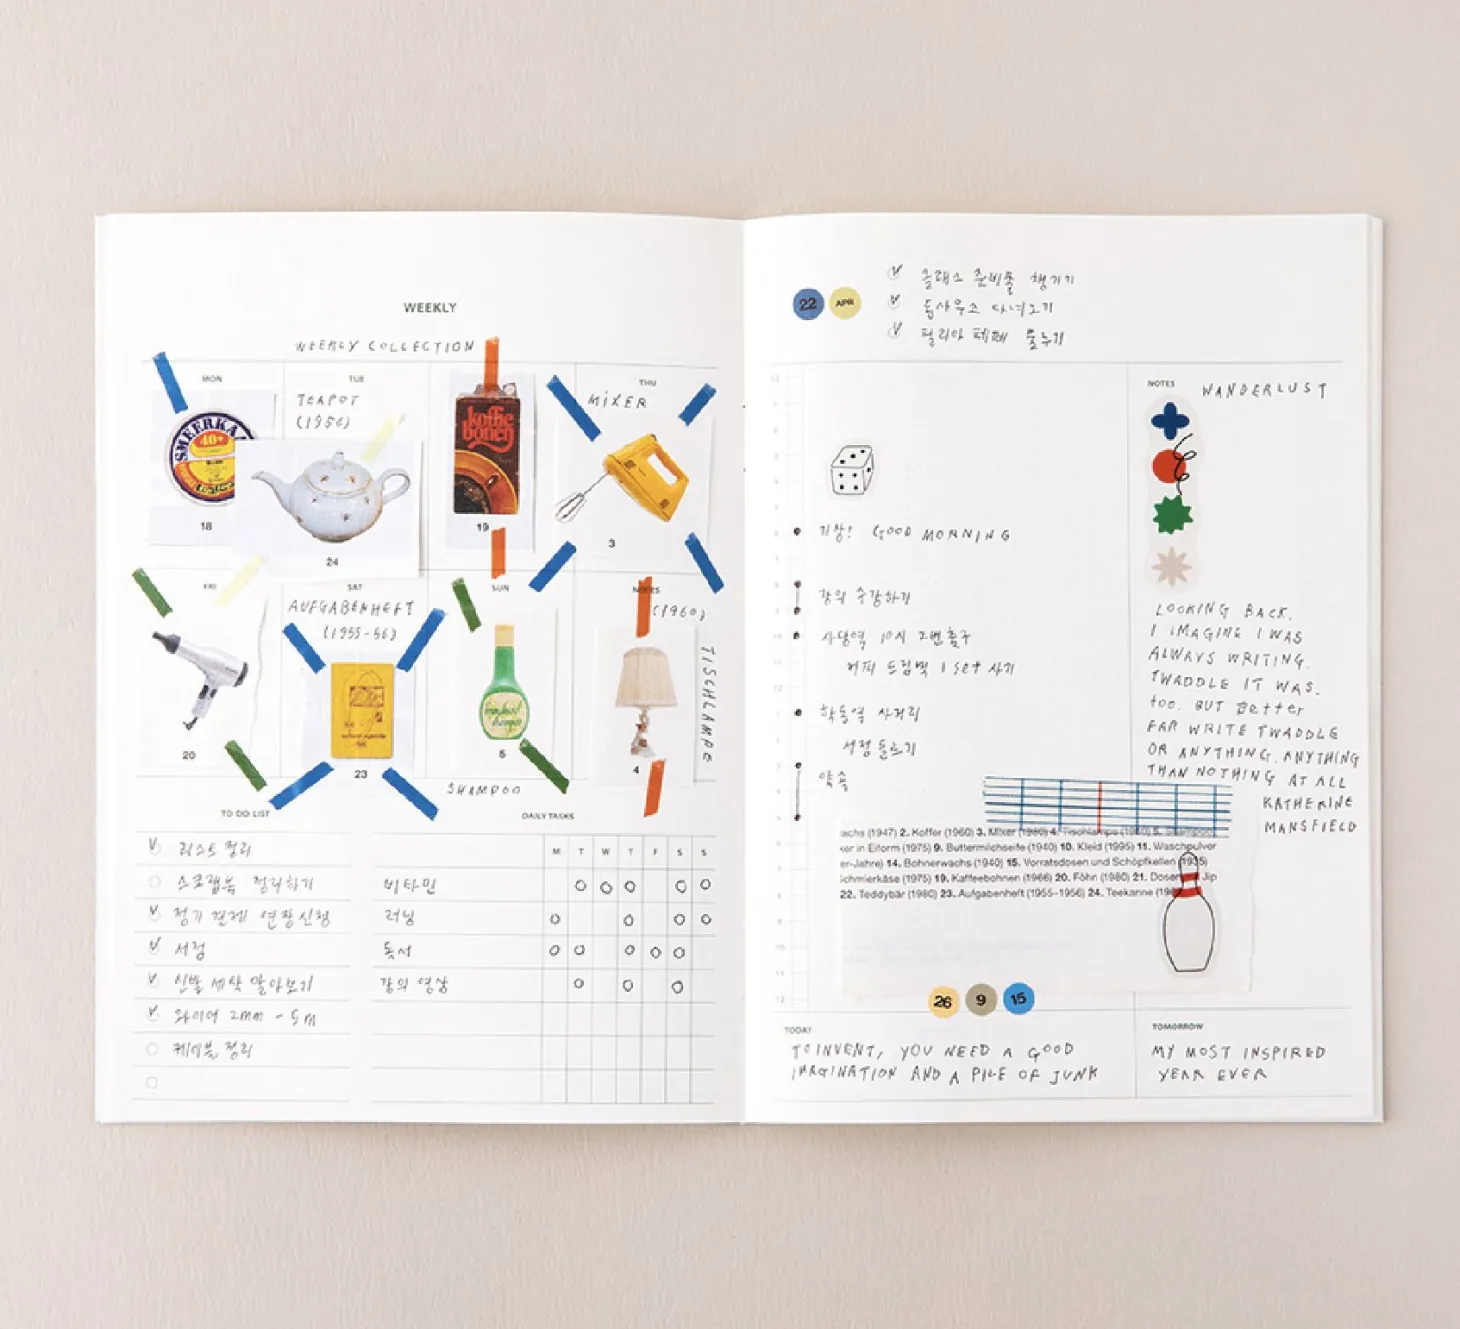 WEEKLY
WEEKLY COLLECTION
MON
TUE
THU
TEAPOT
(1956)
MIXER
SMEERKA
40+
koffie
bonen
18
24
19
3
FRI
SAT
SUN
NOTES
AUFGABENHEFT
(1955-56)
(1960)
TISCHLAMPE
20
23
5
4
SHAMPOO
TO DO LIST
DAILY TASKS
M T W T F S S
리스트 정리
스크랩북 정리하기
정기 결제 연장신청
서점
신발 세탁 알아보기
와이어 2mm - 5m
케이블 정리
비타민
러닝
독서
강의 영상
22 APR
클래스 준비물 챙기기
돕사우스 다녀오기
필리아 페페 물주기
기상! GOOD MORNING
강의 수강하기
사당역 10시 2번출구
커피 드립백 1 set 사기
학동역 사거리
서점 들르기
약속
NOTES
WANDERLUST
LOOKING BACK.
I IMAGINE I WAS
ALWAYS WRITING.
TWADDLE IT WAS.
too. BUT Better
FAR WRITE TWADDLE
OR ANYTHING. ANYTHING
THAN NOTHING AT ALL
KATHERINE
MANSFIELD
achs (1947) 2. Koffer (1960) 3. Mixer (1980) 4. Tischlampe (1960) 5. Shampoo
ker in Eiform (1975) 9. Buttermilchseife (1940) 10. Kleid (1995) 11. Waschpulver
er-Jahre) 14. Bohnerwachs (1940) 15. Vorratsdosen und Schöpfkellen (1935)
chmierkäse (1975) 19. Kaffeebohnen (1966) 20. Föhn (1980) 21. Dosen Jip
22. Teddybär (1980) 23. Aufgabenheft (1955–1956) 24. Teekanne
26 9 15
TODAY
TO INVENT, YOU NEED A GOOD
IMAGINATION AND A PILE OF JUNK
TOMORROW
MY MOST INSPIRED
YEAR EVER